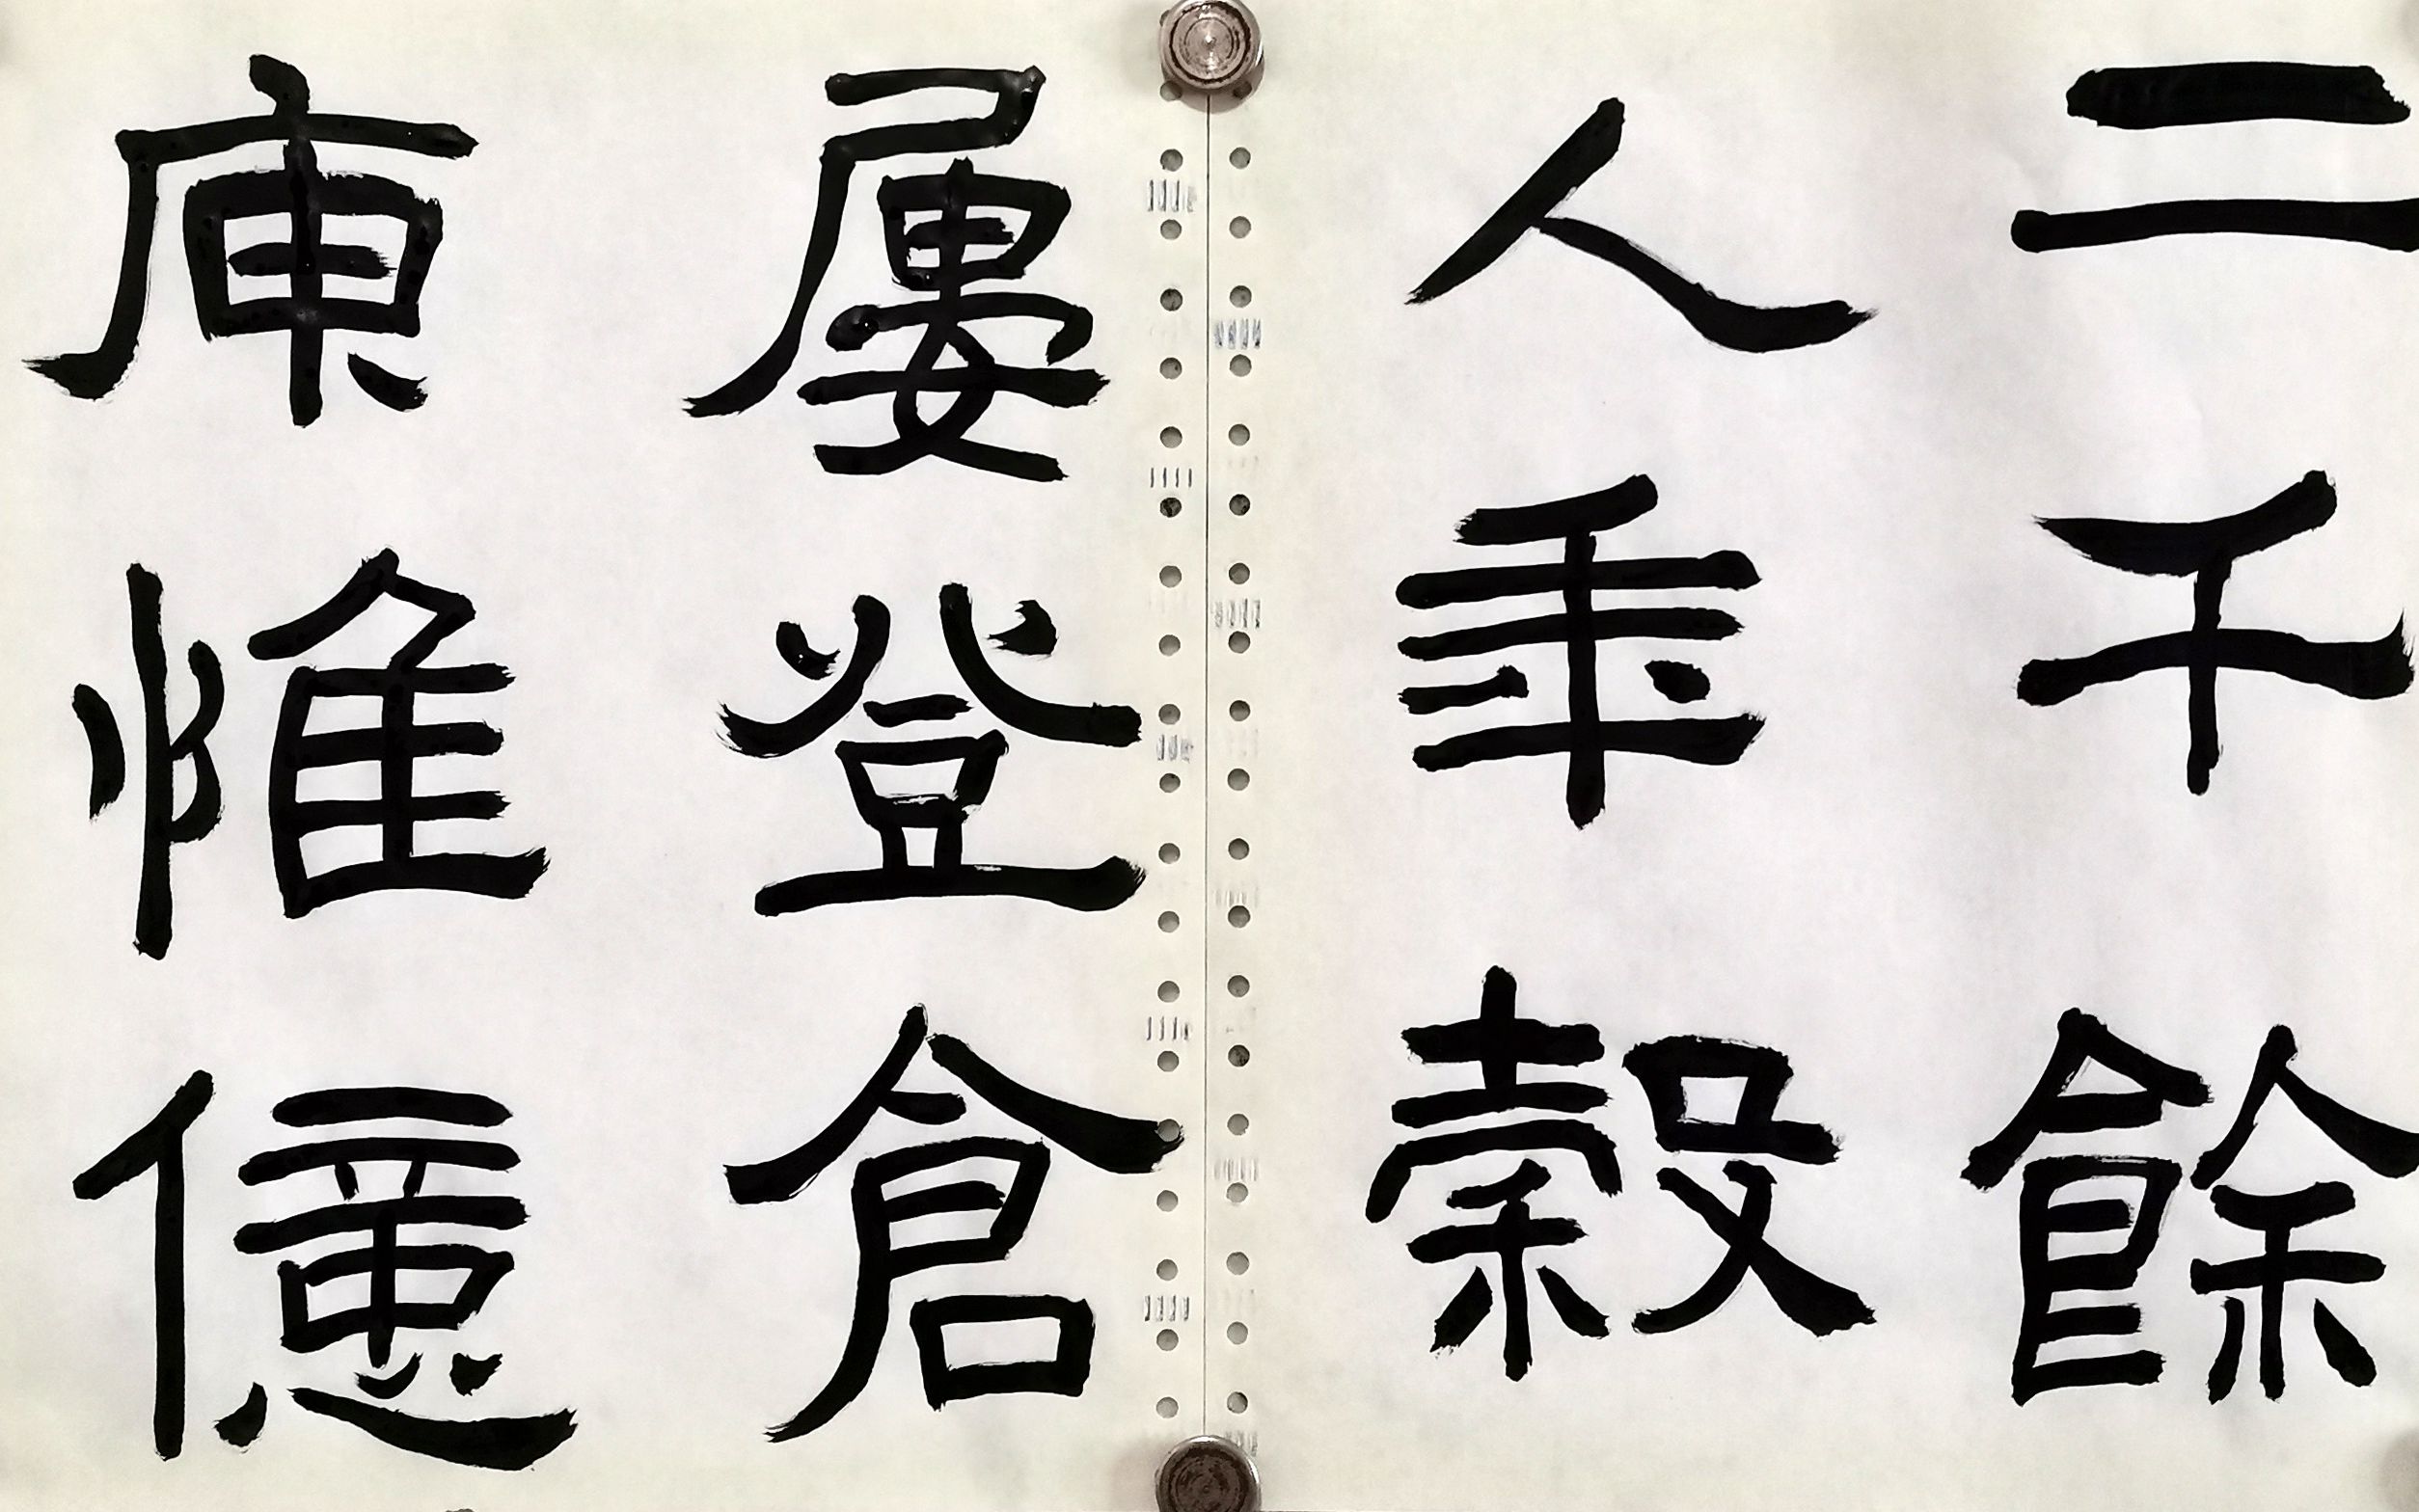 二千餘
人年穀
屢登倉
庾惟億